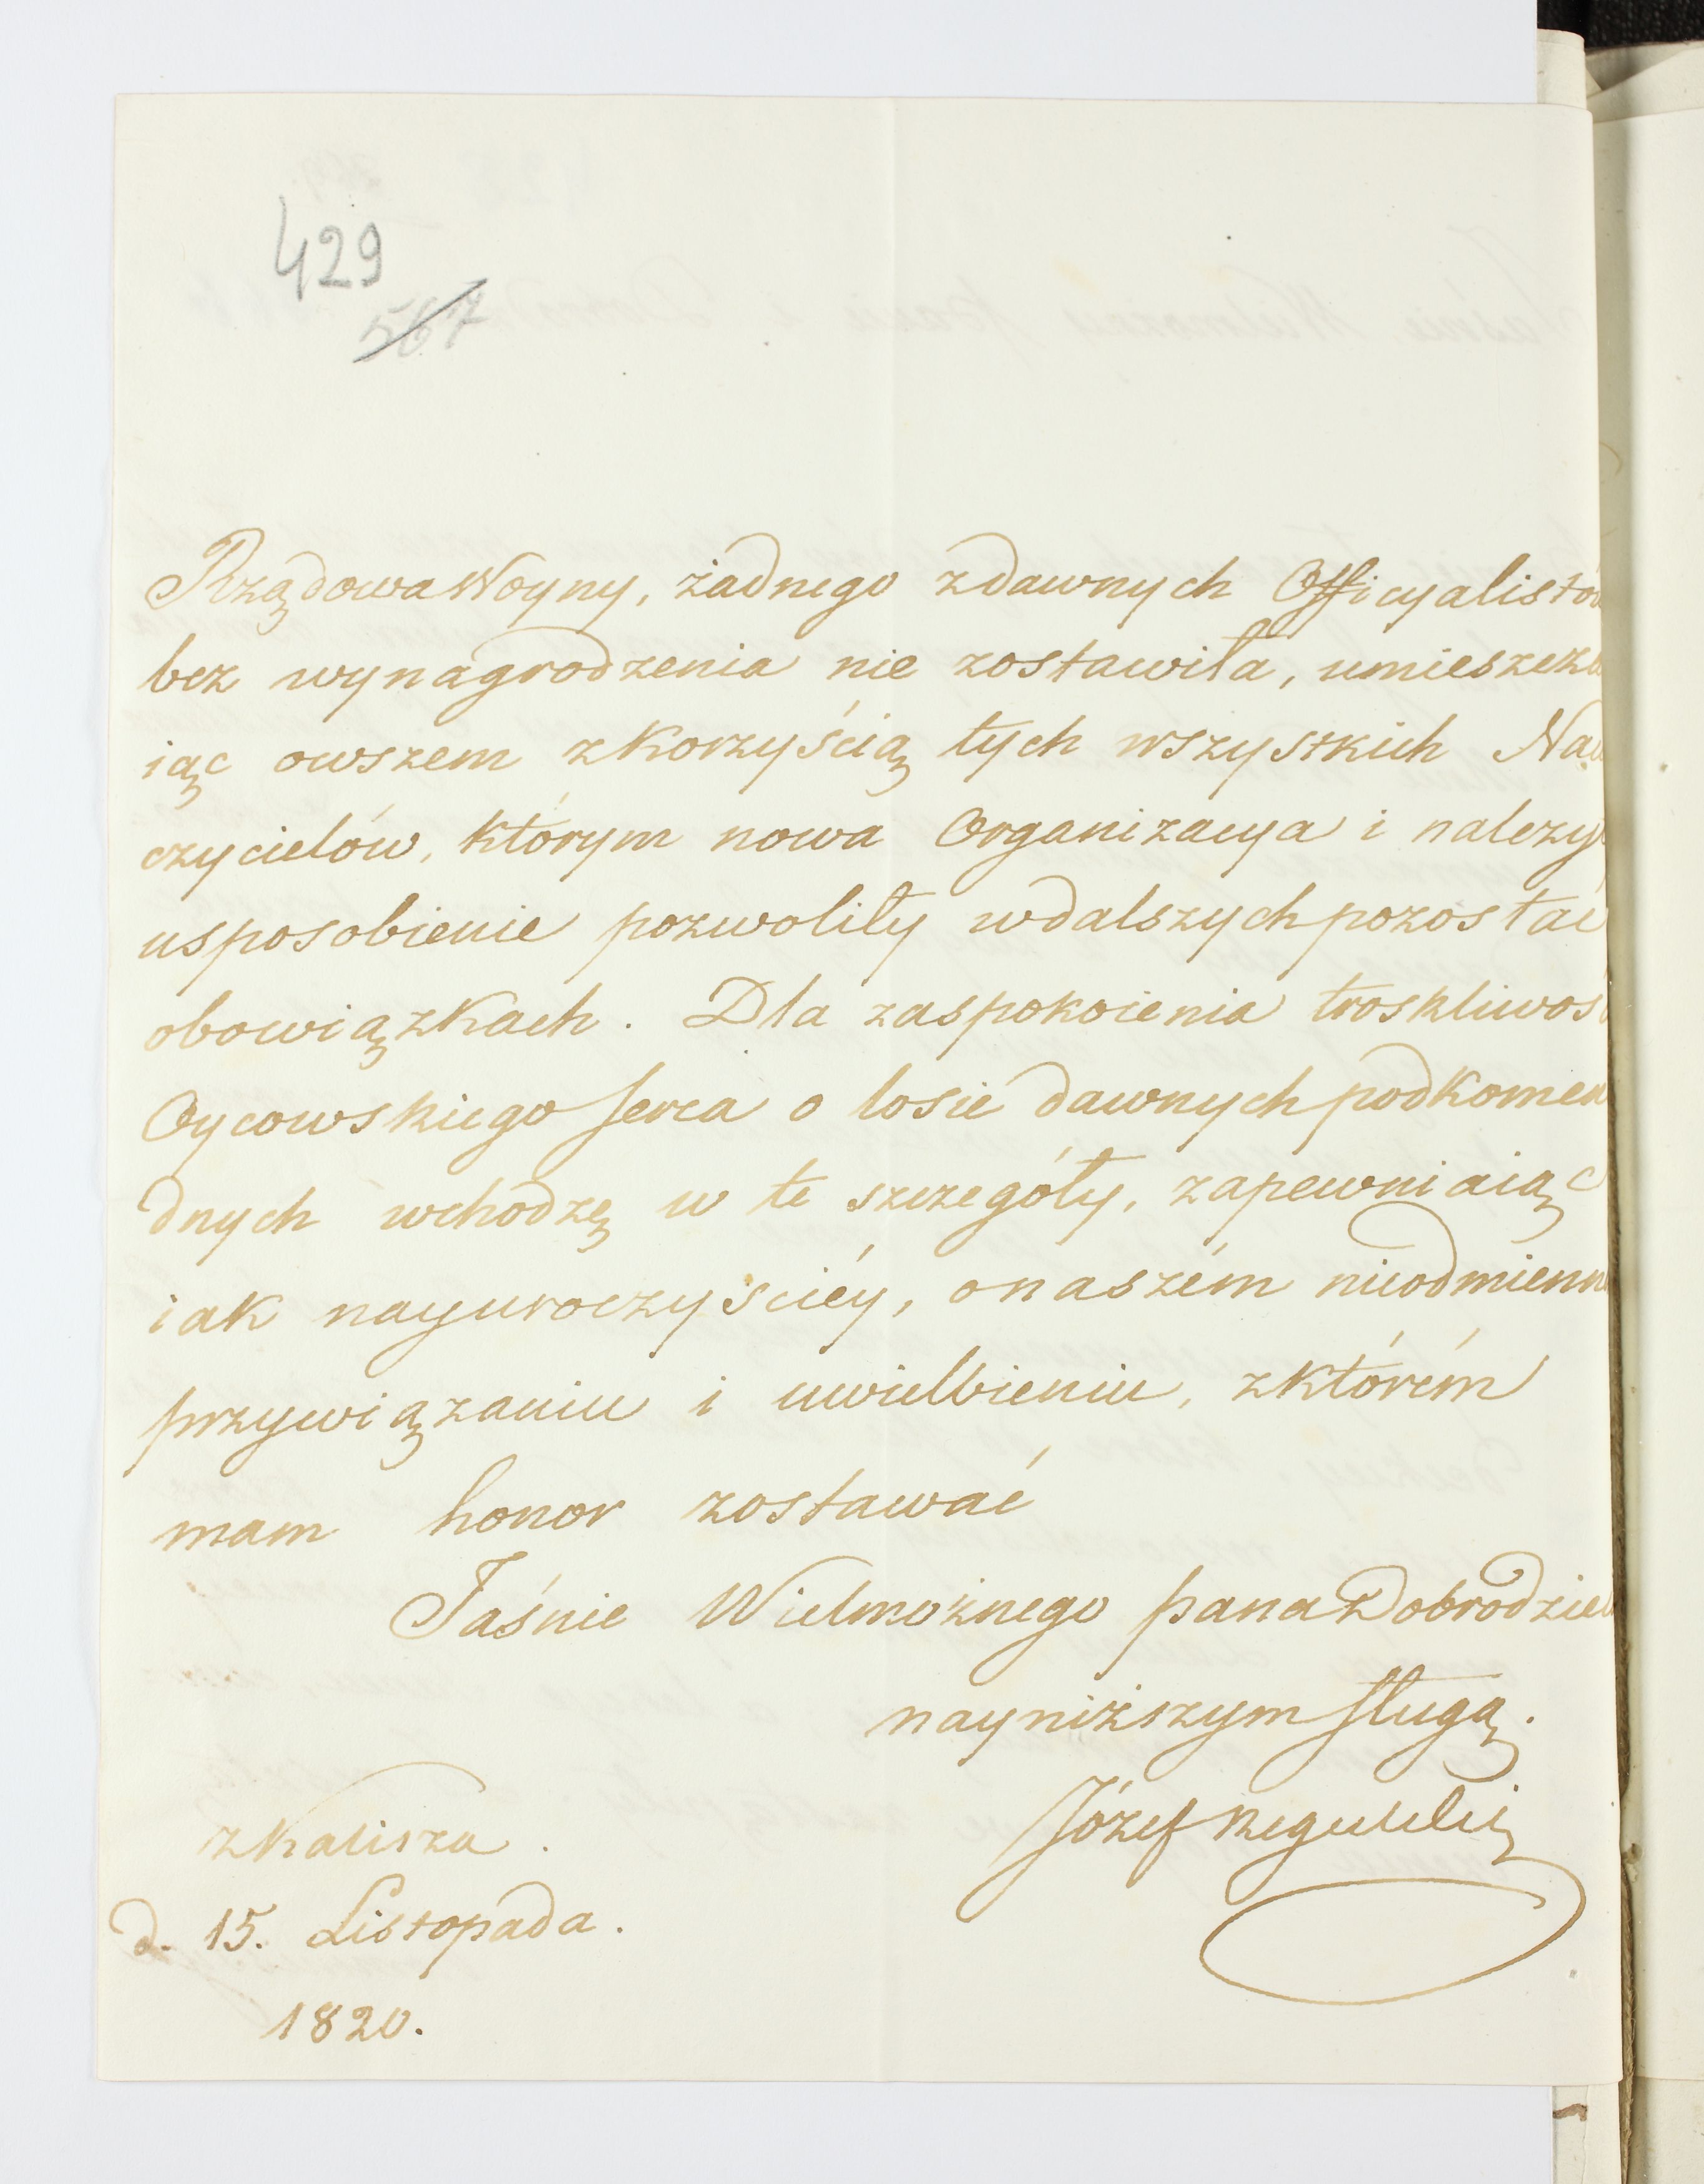 429
567
Rządowa Woyny, żadnego zdawnych Officyalistów
bez wynagrodzenia nie zostawiła, umieszcza
iąc owszem zkorzyścią tych wszystkich Nau
czycielów, którym nowa Organizacya i należy
usposobienie pozwoliły wdalszych pozostać
obowiązkach. Dla zaspokoienia troskliwoś
Oycowskiego serca o losie dawnych podkomen
dnych wchodzę w te szczegóły, zapewniaiąc
iak nayuroczyściéy, onaszém nieodmienn
przywiązaniu i uwielbieniu, zktórém
mam honor zostawać
Jaśnie Wielmożnego pana Dobrodzie
nayniższym sługą.
Józef
zKalisza.
d. 15. Listopada.
1820.